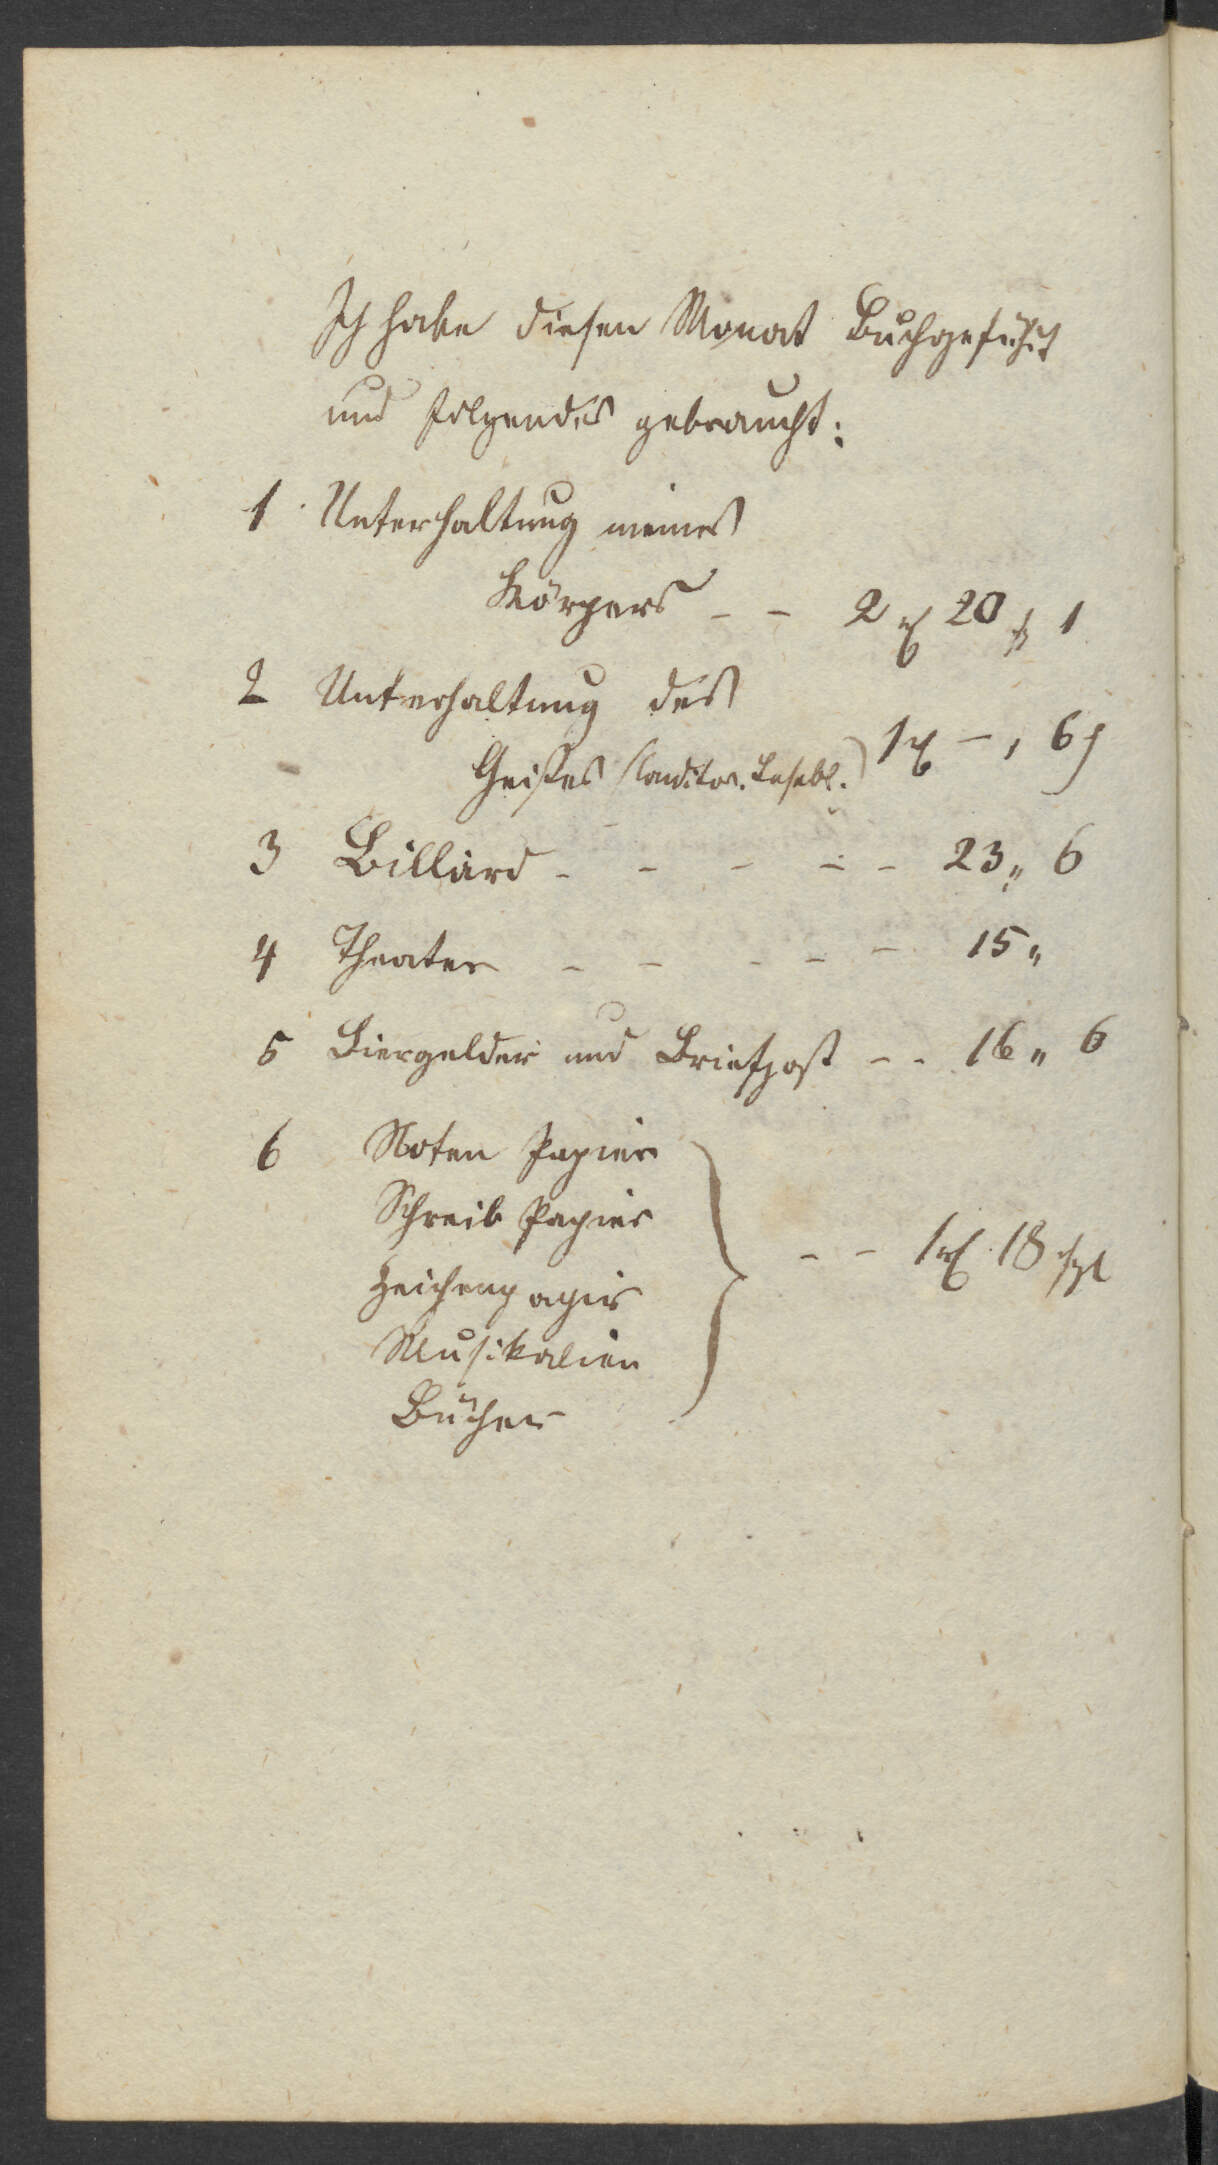 Ich habe diesen Monat Buchgeführt
und folgendes gebraucht:
1 Unterhaltung meines
Körpers - - 2 rℓ 20 1
2 Unterhaltung des
Geistes (Conditor. Lesebl.) 1 rℓ -, 6
3 Billard - - - - - 23 „ 6
4 Theater - - - - - 15 „
5 Biergelder und Briefpost - - 16 „ 6
6 Noten Papier
Schreib Papier
Zeichenpapir - - 1 rℓ. 18
Musikalien
Bücher